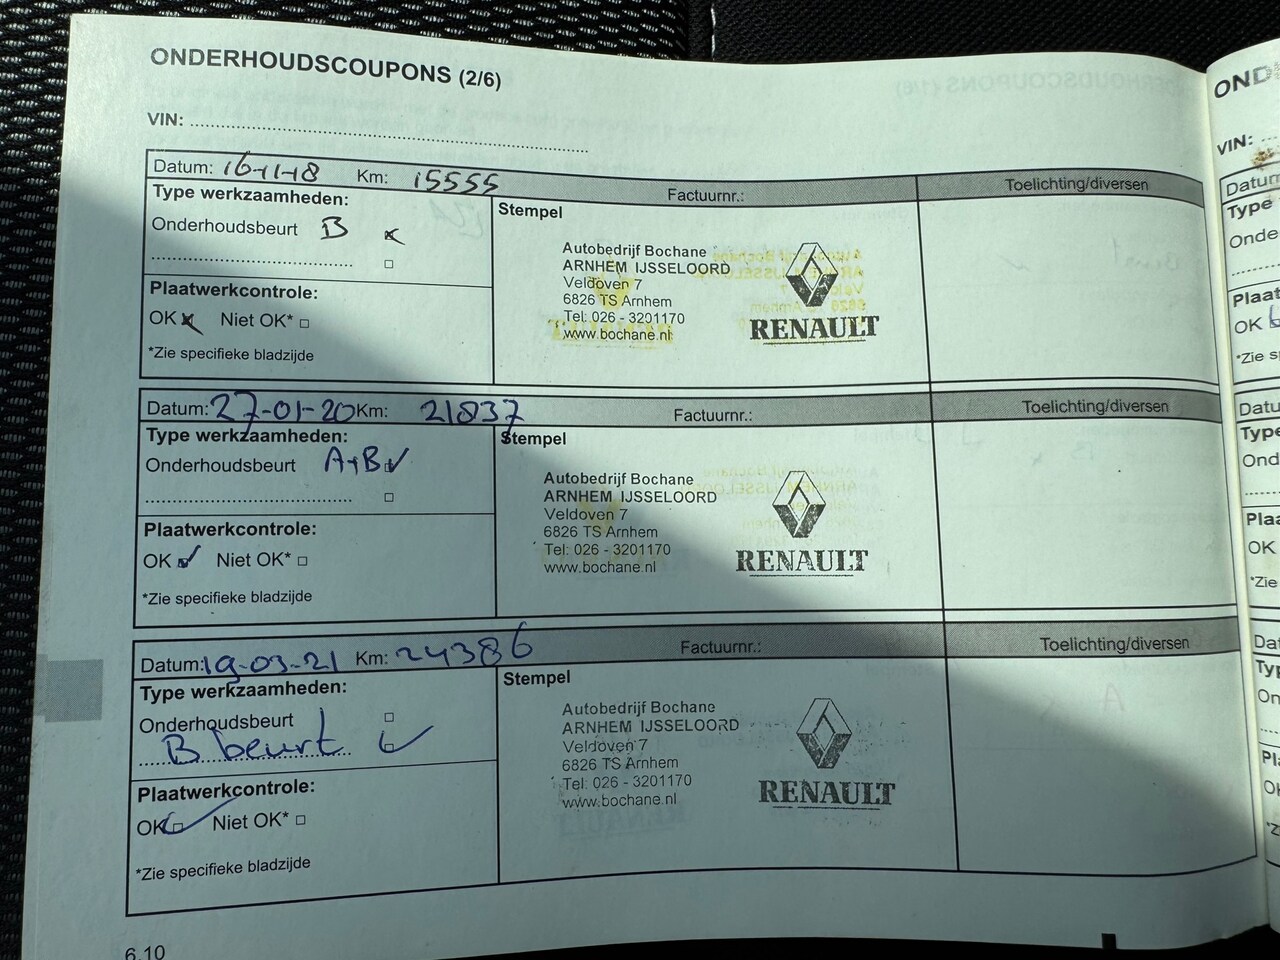 ONDERHOUDSCOUPONS (2/6)
VIN:
Datum: 16-11-18 Km: 15555 Factuurnr.: Toelichting/diversen
Type werkzaamheden:
Onderhoudsbeurt B
Plaatwerkcontrole:
OK Niet OK*
*Zie specifieke bladzijde
Stempel
Autobedrijf Bochane
ARNHEM IJSSELOORD
Veldoven 7
6826 TS Arnhem
Tel: 026 - 3201170
www.bochane.nl
RENAULT
Datum: 27-01-20 Km: 21837 Factuurnr.: Toelichting/diversen
Type werkzaamheden:
Onderhoudsbeurt A+B
Plaatwerkcontrole:
OK Niet OK*
*Zie specifieke bladzijde
Stempel
Autobedrijf Bochane
ARNHEM IJSSELOORD
Veldoven 7
6826 TS Arnhem
Tel: 026 - 3201170
www.bochane.nl
RENAULT
Datum: 19-03-21 Km: 24386 Factuurnr.: Toelichting/diversen
Type werkzaamheden:
Onderhoudsbeurt
B beurt
Plaatwerkcontrole:
OK Niet OK*
*Zie specifieke bladzijde
Stempel
Autobedrijf Bochane
ARNHEM IJSSELOORD
Veldoven 7
6826 TS Arnhem
Tel: 026 - 3201170
www.bochane.nl
RENAULT
6.10
VIN:
OK
OK